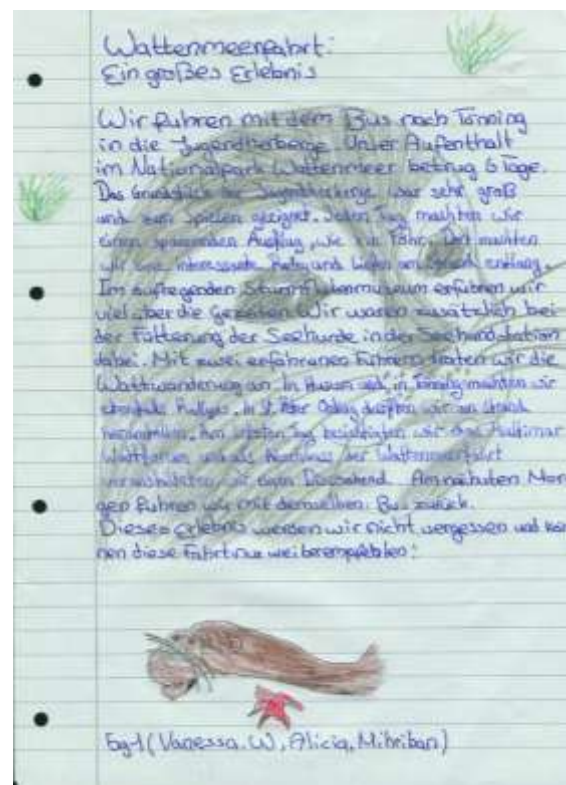 Wattenmeerfahrt:
Ein großes Erlebnis
Wir fuhren mit dem Bus nach Tönning
in die Jugendherberge. Unser Aufenthalt
im Nationalpark Wattenmeer betrug 6 Tage.
Das Grundstück der Jugendherberge war sehr groß
und zum spielen geeignet. Jeden Tag machten wir
einen spannenden Ausflug, wie zu Föhr. Dort machten
wir eine interessante und liefen am entlang.
Im aufregenden Sturmflutenmuseum erfuhren wir
viel über die Gezeiten. Wir waren zusätzlich bei
der Fütterung der Seehunde in der Seehundstation
dabei. Mit zwei erfahrenen Führern traten wir die
Wattwanderung an. In Husum und in Tönning machten wir
ebenfalls Rallyes. In St. Peter Ording durften wir am Strand
Am letzten Tag besichtigten wir das Multimar
Wattforum und als Abschluss der Wattenmeerfahrt
veranstalteten wir einen Discoabend. Am nächsten Mor-
gen fuhren wir mit demselben Bus zurück.
Dieses Erlebnis werden wir nicht vergessen und kön-
nen diese Fahrt nur weiterempfehlen!
5g1 (Vanessa.W, Alicia, Mihriban)